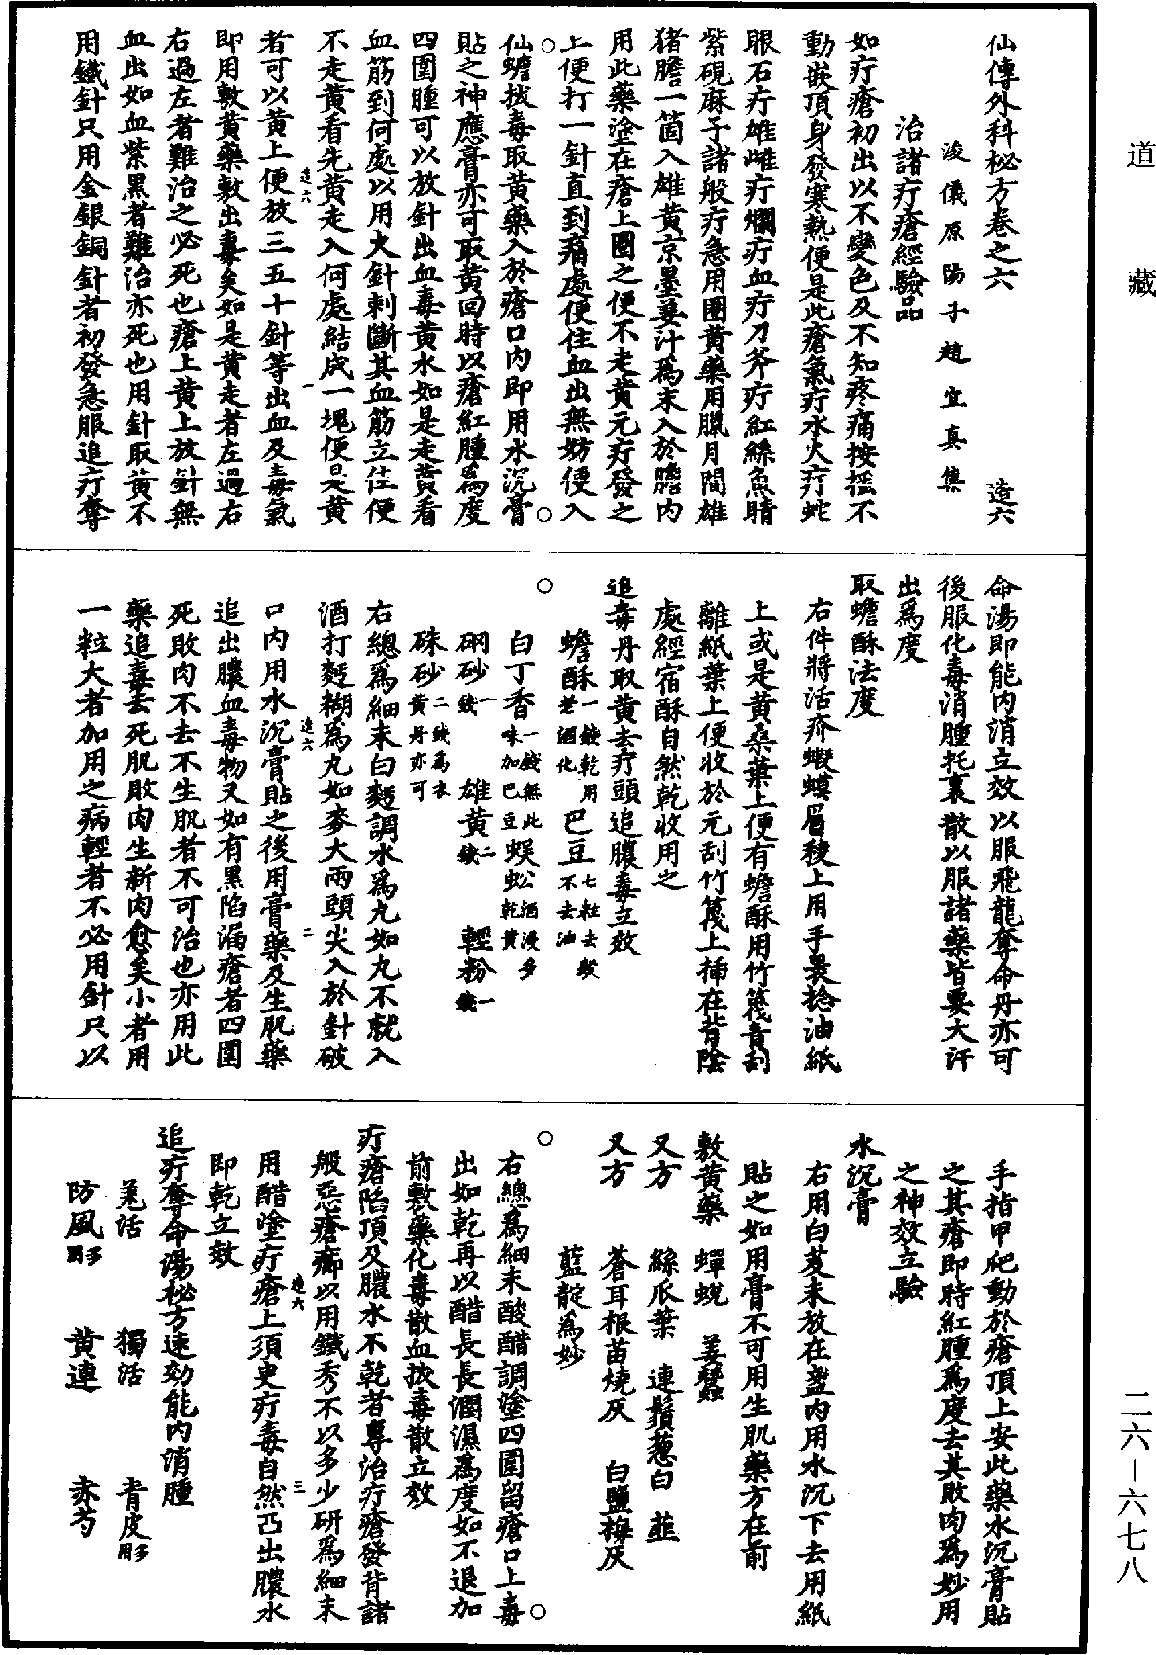 道藏
仙傳外科秘方卷之六 造六
浚儀原陽子趙宜真集
治諸疔瘡經驗品
如疔瘡初出以不變色及不知疼痛按搖不
動嵌頂身發寒熱便是此瘡氣疔水火疔蛇
眼石疔雄雌疔爛疔血疔刀斧疔紅絲魚睛
紫硯麻子諸般疔急用圈黃藥用臘月間雄
猪膽一箇入雄黃京墨薑汁爲末入於膽內
用此藥塗在瘡上圈之便不走黃元疔發之
上便打一針直到痛處便住血出無妨便入
仙蟾拔毒取黃藥入於瘡口內即用水沉膏
貼之神應膏亦可取黃回時以瘡紅腫爲度
四圍腫可以放針出血毒黃水如是走黃看
血筋到何處以用大針刺斷其血筋立住便
不走黃看先黃走入何處結成一塊便是黃
造六 一
者可以黃上便放三五十針等出血及毒氣
即用敷黃藥敷出毒矣如是黃走者左過右
右過左者難治之必死也瘡上黃上放針無
血出如血紫黑者難治亦死也用針取黃不
用鐵針只用金銀銅針者初發急服追疔奪
命湯即能內消立效以服飛龍奪命丹亦可
後服化毒消腫托裏散以服諸藥皆要大汗
出爲度
取蟾酥法度
右件將活疥蝦蟆眉稜上用手裊捻油紙
上或是黃桑葉上便有蟾酥用竹篾青刮
離紙葉上便收於元刮竹篾上揷在背陰
處經宿酥自然乾收用之
追毒丹取黃去疔頭追膿毒立效
蟾酥一錢乾用老酒化 巴豆七粒去殼不去油
白丁香一錢無此味加巴豆 蜈蚣酒浸多乾黃
硇砂一錢 雄黃二錢 輕粉一錢
硃砂二錢爲衣黃丹亦可
右總爲細末白麪調水爲丸如丸不就入
酒打麪糊爲丸如麥大兩頭尖入於針破
造六 二
口內用水沉膏貼之後用膏藥及生肌藥
追出膿血毒物又如有黑陷漏瘡者四圍
死敗肉不去不生肌者不可治也亦用此
藥追毒去死肌敗肉生新肉愈矣小者用
一粒大者加用之病輕者不必用針只以
手指甲爬動於瘡頂上安此藥水沉膏貼
之其瘡即時紅腫爲度去其敗肉爲妙用
之神效立驗
水沉膏
右用白芨末放在盞內用水沉下去用紙
貼之如用膏不可用生肌藥方在前
敷黃藥 蟬蛻 姜蠶
又方 絲瓜葉 連鬚葱白 韮
又方 蒼耳根苗燒灰 白鹽梅灰
藍靛爲妙
右總爲細末酸醋調塗四圍留瘡口上毒
出如乾再以醋長長潤濕爲度如不退加
前敷藥化毒散血拔毒散立效
疔瘡陷頂及膿水不乾者專治疔瘡發背諸
般惡瘡癤以用鐵秀不以多少研爲細末
用醋塗疔瘡上須臾疔毒自然凸出膿水
造六 三
即乾立效
追疔奪命湯秘方速効能內消腫
羌活 獨活 青皮多用
防風多用 黃連 赤芍
二六—六七八